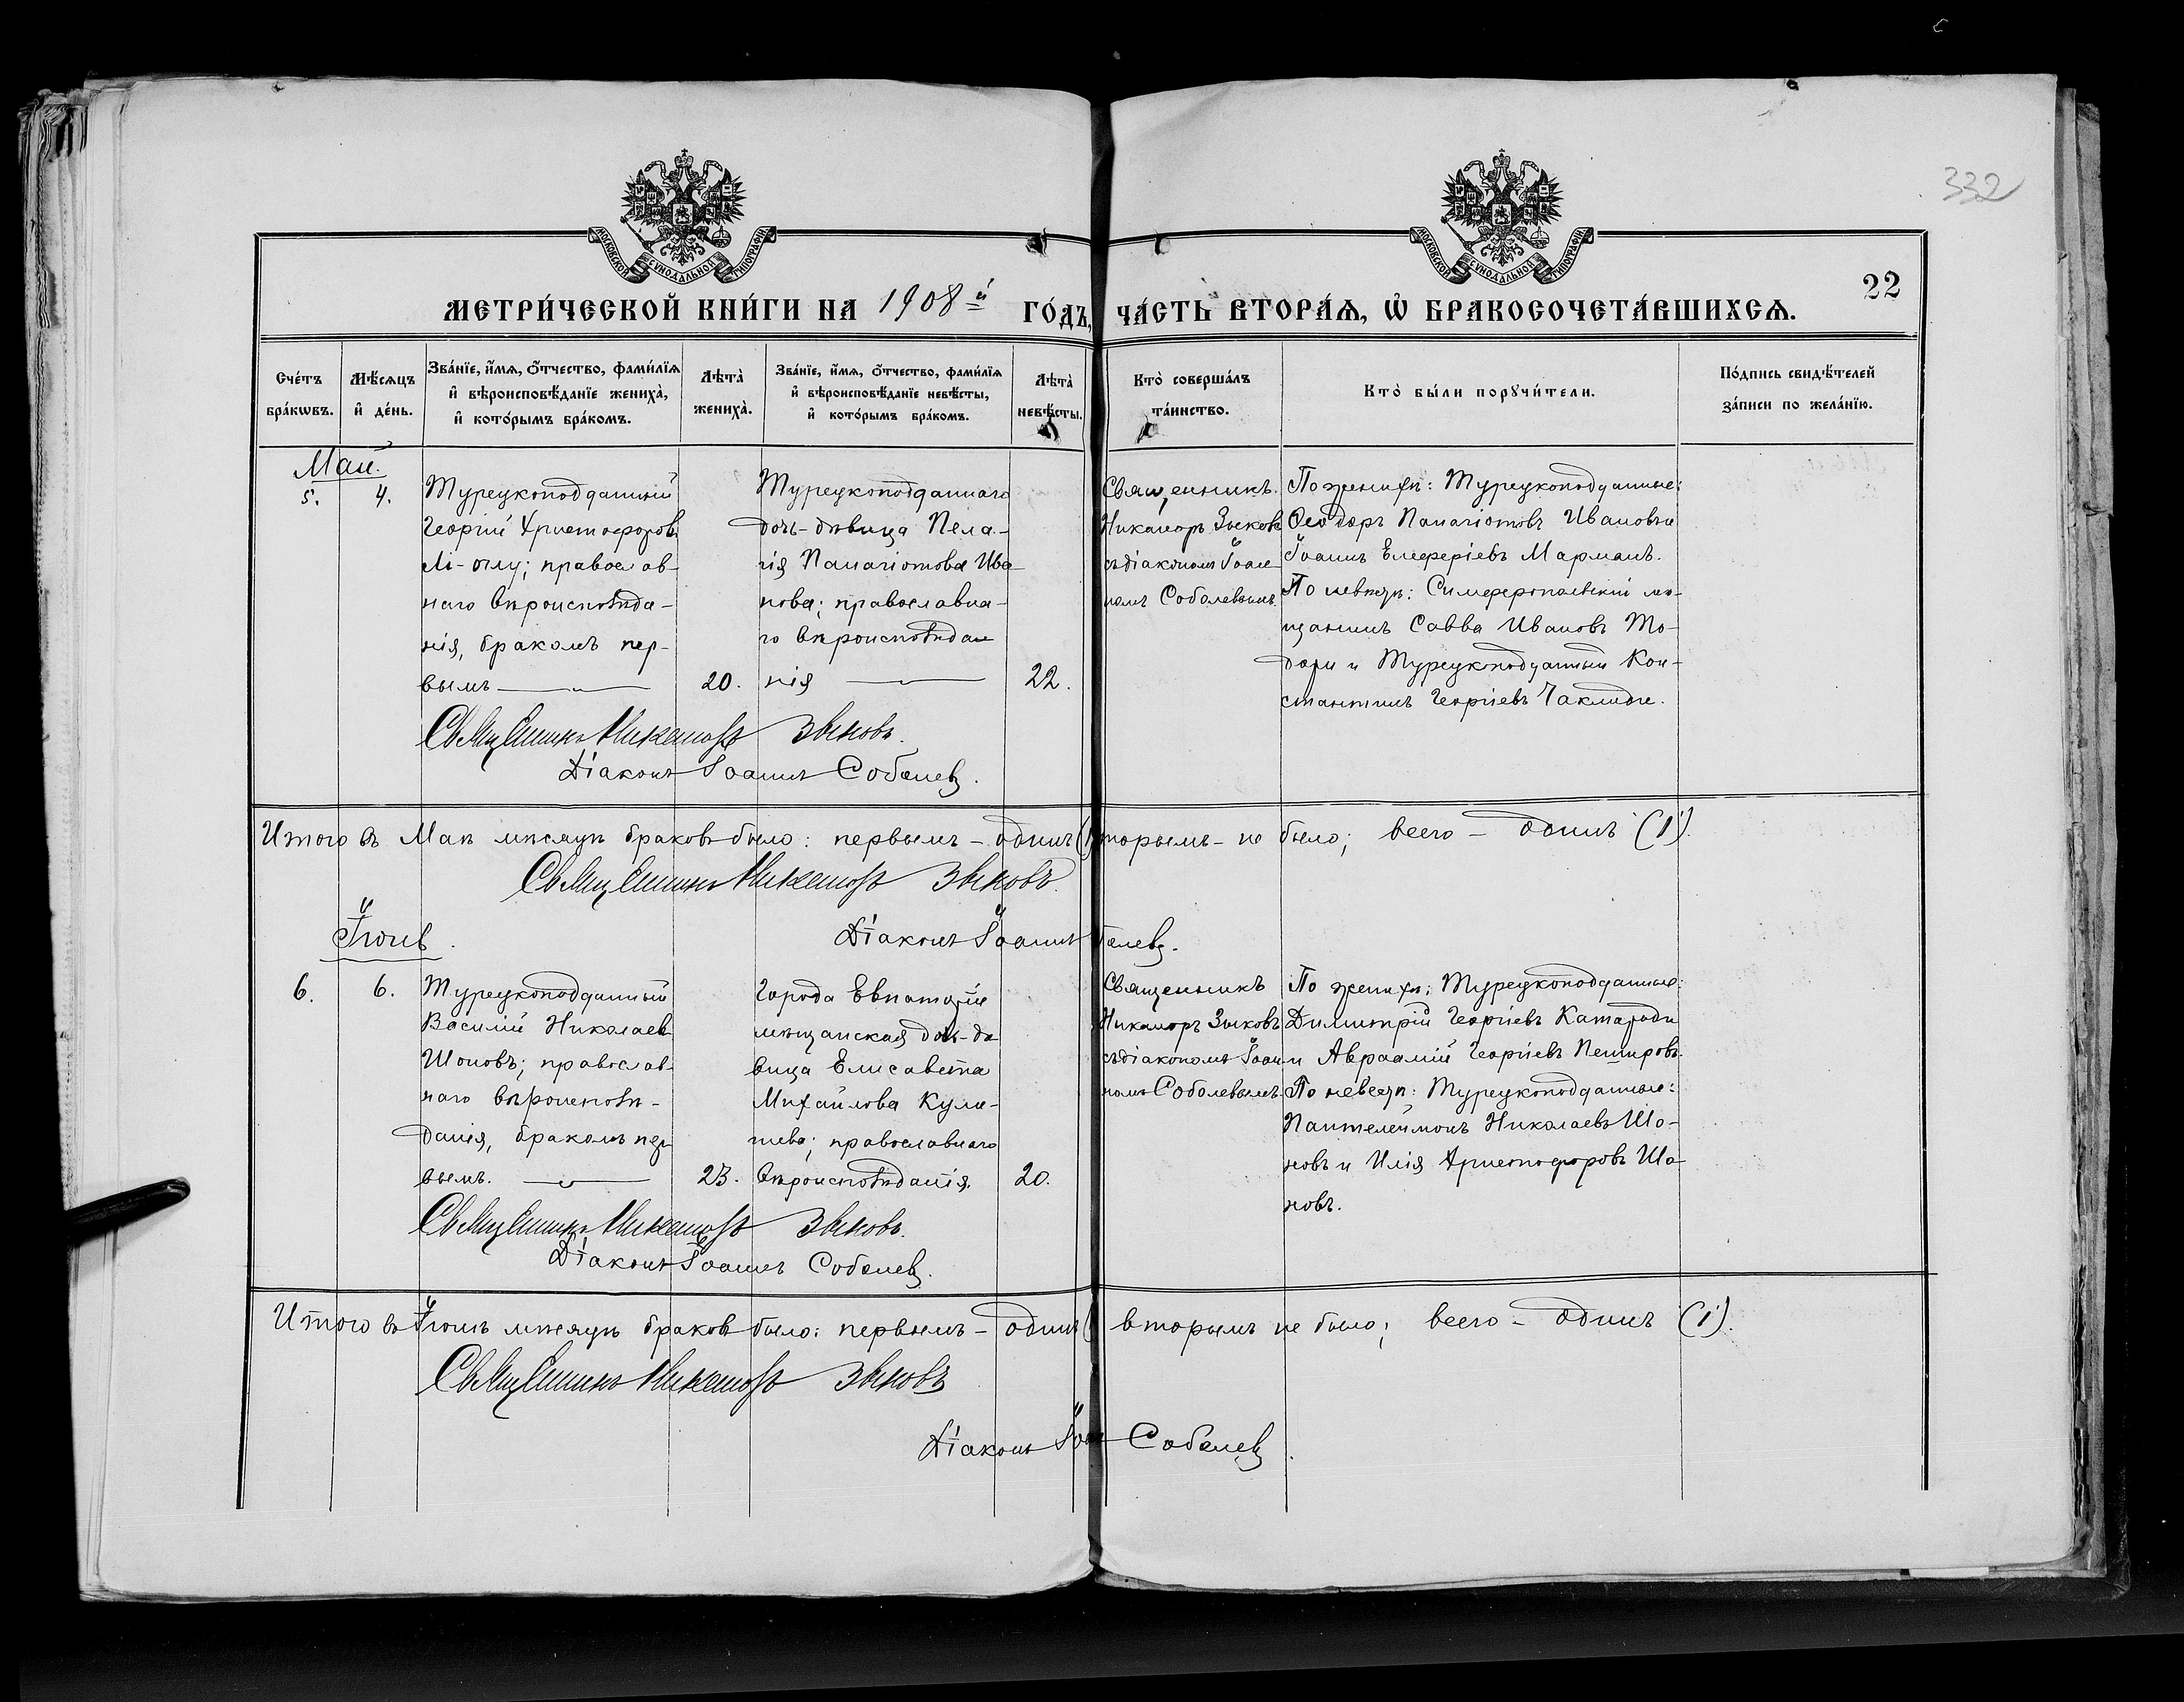 332
МОСКОВСКОЙ СѴНОДАЛЬНОЙ ТИПОГРАФІИ
МОСКОВСКОЙ СѴНОДАЛЬНОЙ ТИПОГРАФІИ
22
МЕТРИ́ЧЕСКОЙ КНИ́ГИ НА 1908й ГО́ДЪ, ЧА́СТЬ ВТОРА́Ѧ, Ѡ҆ БРАКОСОЧЕТА́ВШИХСѦ.
Сче́тъ
бра́кѡвъ.
Мѣ́сѧцъ
и҆ де́нь.
Зва́нїе, и҆́мѧ, ѻ҆́тчество, фами́лїѧ
и҆ вѣроисповѣ́данїе жениха̀,
и҆ кото́рымъ бра́комъ.
Лѣта̀
жениха̀.
Зва́нїе, и҆́мѧ, ѻ҆́тчество, фами́лїѧ
и҆ вѣроисповѣ́данїе невѣ́сты,
и҆ кото́рымъ бра́комъ.
Лѣта̀
невѣ́сты.
Кто̀ соверша́лъ
та́инство.
Кто̀ бы́ли порꙋчи́тели.
По́дпись свидѣ́телей
за́писи по жела́нїю.
Май.
5.
4.
Турецкоподданный
Георгій Христофоровъ
Лі-оглу; православ-
наго вѣроисповѣда-
нія, бракомъ пер-
вымъ
20.
Турецкоподданнаго
дочь-дѣвица Пела-
гія Панагіотова Ива-
нова; православна-
го вѣроисповѣда-
нія
22.
Священникъ
Никаноръ Зыковъ
съ діакономъ Іоан-
номъ Соболевымъ.
По женихѣ: Турецкоподданные:
Ѳеодоръ Панагіотовъ Ивановъ и
Іоаннъ Елеферіевъ Марманъ.
По невѣстѣ: Симферопольскій мѣ-
щанинъ Савва Ивановъ То-
дори и Турецкоподданный Кон-
стантинъ Георгіевъ Чаклиди.
Священникъ Никаноръ Зыковъ.
Діаконъ Іоаннъ Соболевъ.
Итого въ Маѣ мѣсяцѣ браковъ было: первымъ - одинъ (1) вторымъ - не было; всего - одинъ (1).
Священникъ Никаноръ Зыковъ.
Діаконъ Іоаннъ Соболевъ.
Іюнь.
6.
6.
Турецкоподданный
Василій Николаевъ
Шоновъ; православ-
наго вѣроисповѣ-
данія, бракомъ пер-
вымъ.
23.
Города Евпаторіи
мѣщанская дочь-дѣ-
вица Елисавета
Михайлова
православнаго
вѣроисповѣданія.
20.
Священникъ
Никаноръ Зыковъ
съ діакономъ Іоан-
номъ Соболевымъ.
По женихѣ: Турецкоподданные:
Димитрій Георгіевъ Катароди
и Авраамій Георгіевъ Петировъ.
По невѣстѣ: Турецкоподданные:
Пантелеймонъ Николаевъ Шо-
новъ и Илія Христофоровъ Шо-
новъ.
Священникъ Никаноръ Зыковъ.
Діаконъ Іоаннъ Соболевъ.
Итого въ Іюнѣ мѣсяцѣ браковъ было: первымъ - одинъ ( вторымъ не было; всего - одинъ (1).
Священникъ Никаноръ Зыковъ
Діаконъ Іоан Соболевъ.